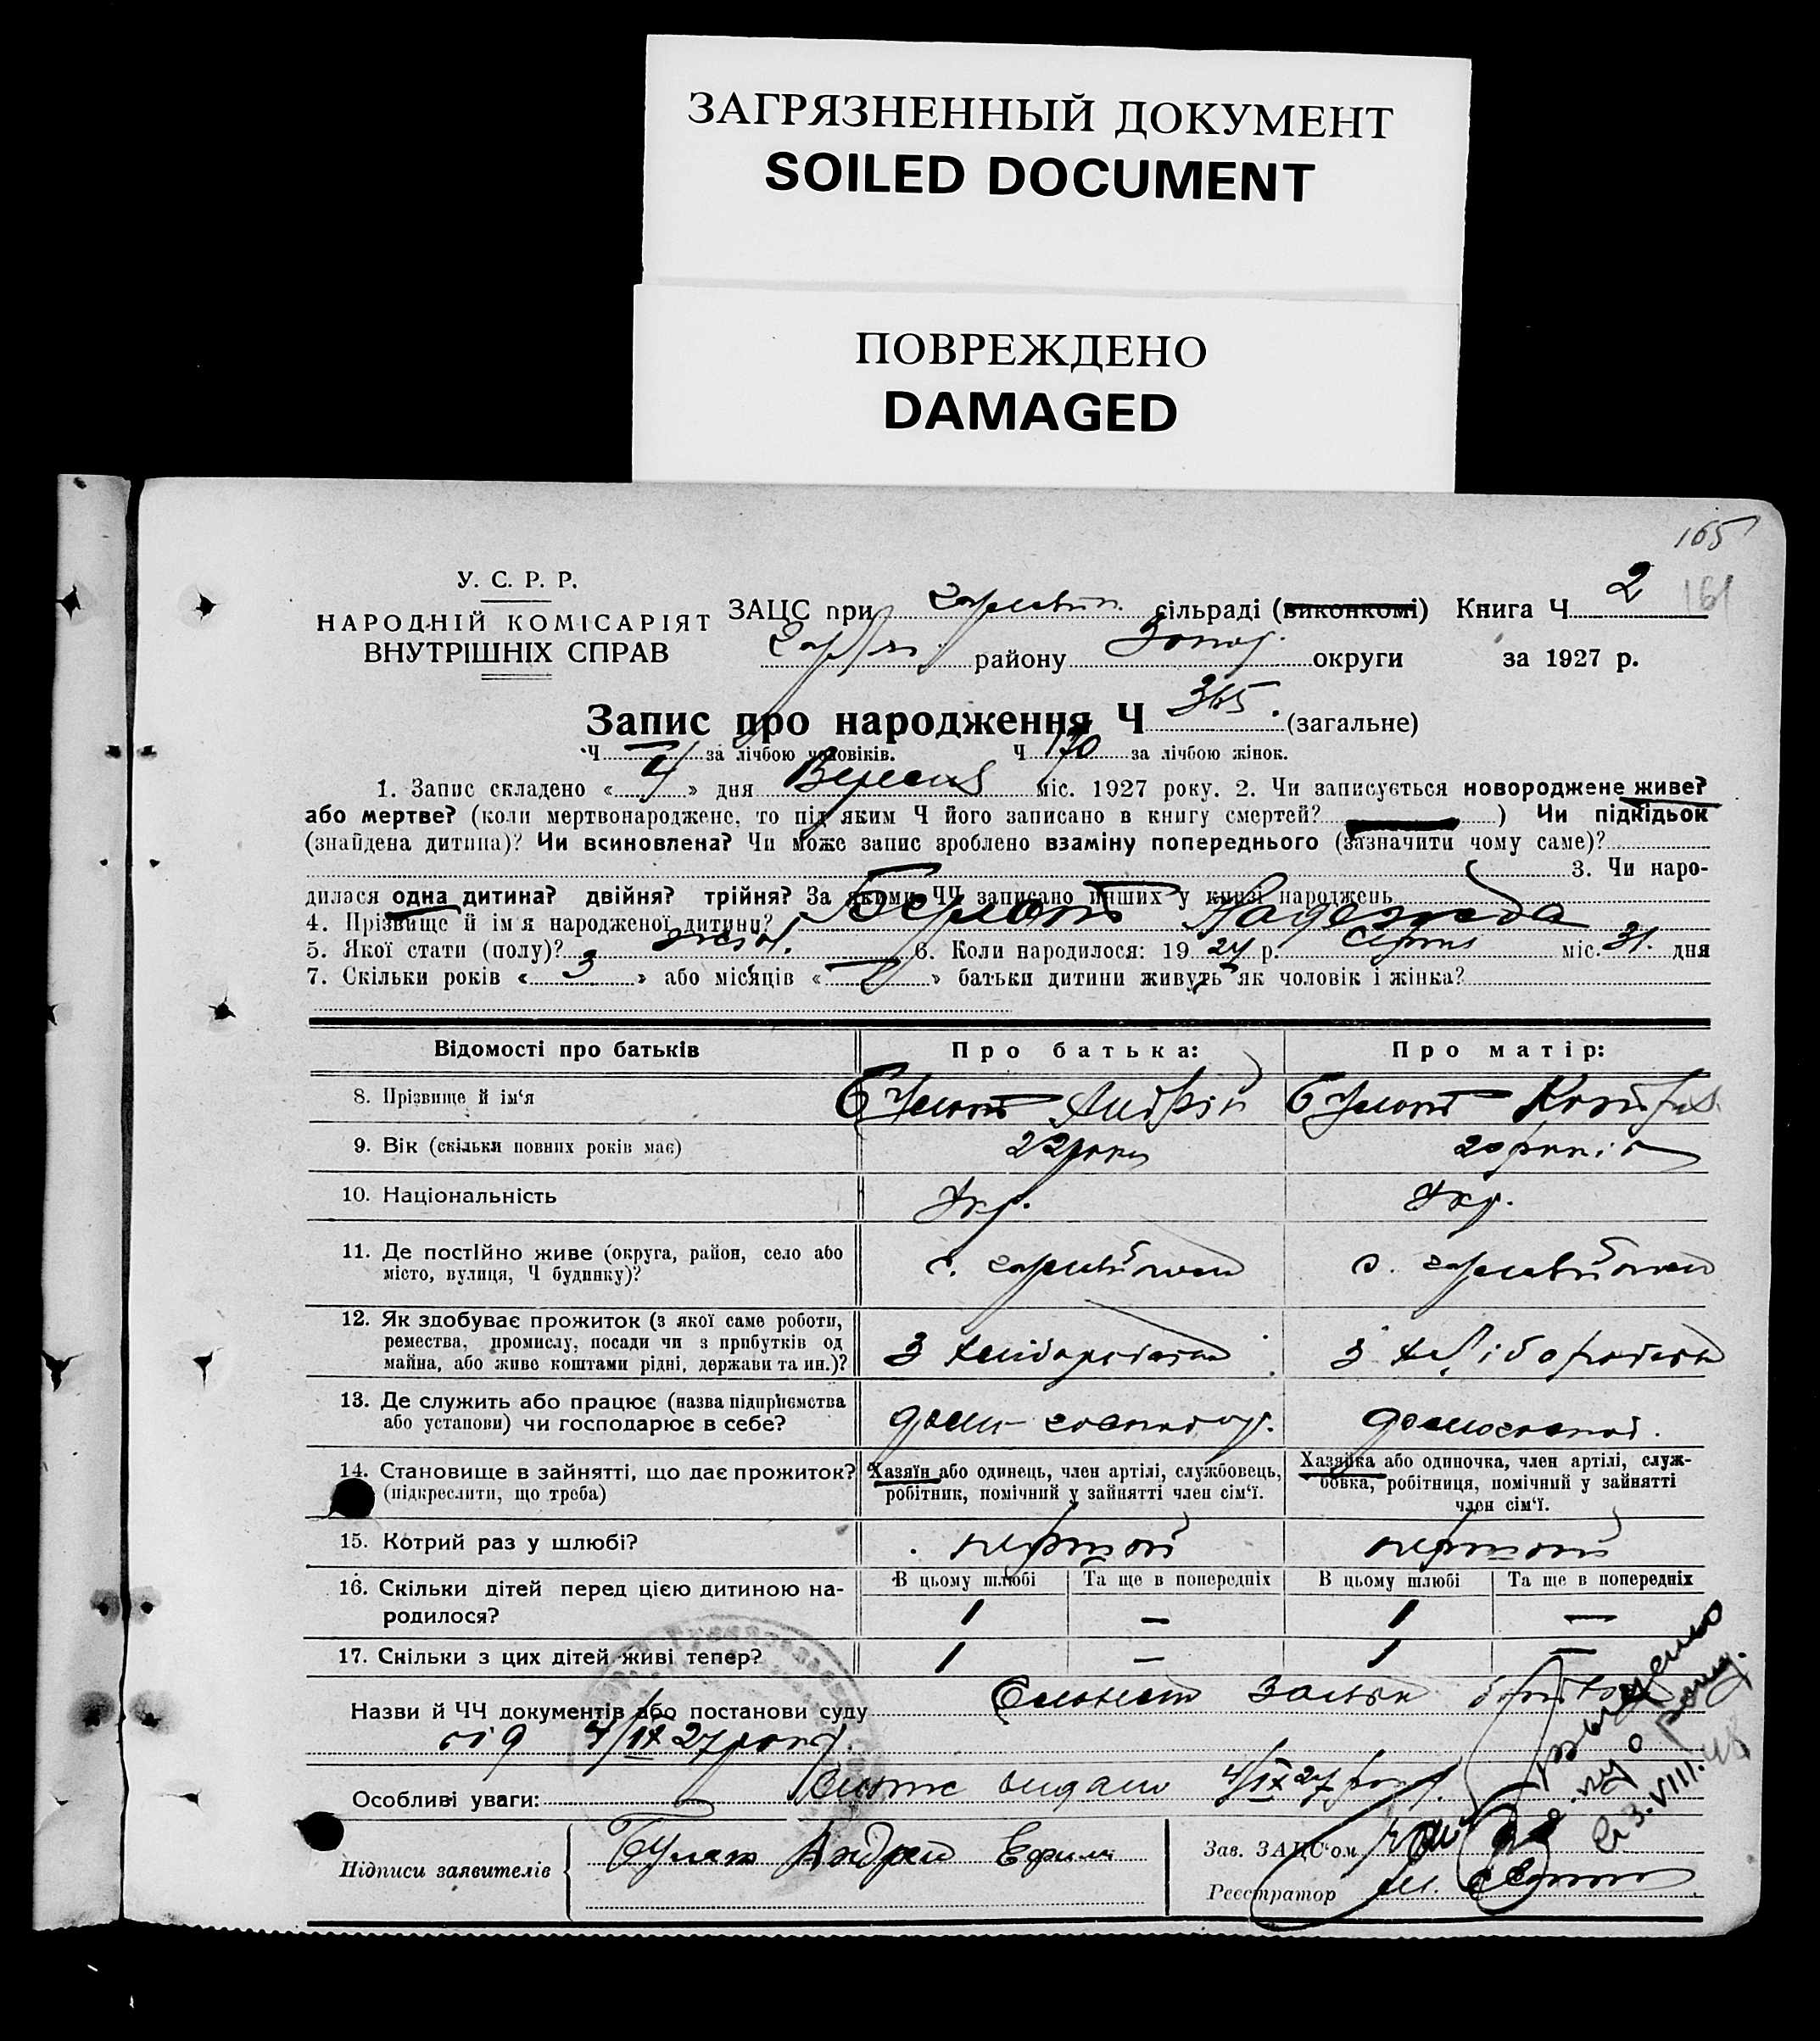 ЗАГРЯЗНЕННЫЙ ДОКУМЕНТ
SOILED DOCUMENT
ПОВРЕЖДЕНО
DAMAGED
165
161
У. С. Р. Р.
НАРОДНІЙ КОМІСАРІЯТ
ВНУТРІШНІХ СПРАВ
ЗАЦС при сільраді (виконкомі) Книга Ч 2
району округи за 1927 р.
Запис про народження Ч 365. (загальне)
Ч за лічбою чоловіків. Ч 170 за лічбою жінок.
1. Запис складено « 4 » дня Вересня міс. 1927 року. 2. Чи записується новороджене живе?
або мертве? (коли мертвонароджене, то під яким Ч його записано в книгу смертей? ) Чи підкідьок
(знайдена дитина)? Чи всиновлена? Чи може запис зроблено взаміну попереднього (зазначити чому саме)?
3. Чи наро-
дилася одна дитина? двійня? трійня? За якими ЧЧ записано инших у книзі народжень
4. Прізвище й ім'я народженої дитини? Булат Надежда
5. Якої стати (полу)? жіноч. 6. Коли народилося: 19 27 р. серпня міс. 31. дня
7. Скільки років « 3 » або місяців « » батьки дитини живуть як чоловік і жінка?
Відомості про батьків Про батька: Про матір:
8. Прізвище й ім'я Булат Андрій Булат
9. Вік (скільки повних років має) 22 роки 20 років
10. Національність Укр. Укр.
11. Де постійно живе (округа, район, село або
місто, вулиця, Ч будинку)?
12. Як здобуває прожиток (з якої саме роботи,
ремества, промислу, посади чи з прибутків од
майна, або живе коштами рідні, держави та ин.)?
з хліборобства з хліборобства
13. Де служить або працює (назва підприємства
або установи) чи господарює в себе?
домогосподар. домогоспод.
14. Становище в зайнятті, що дає прожиток?
(підкреслити, що треба)
Хазяїн або одинець, член артілі, службовець,
робітник, помічний у зайнятті член сім'ї.
Хазяйка або одиночка, член артілі, служ-
бовка, робітниця, помічний у зайнятті
член сім'ї.
15. Котрий раз у шлюбі? первой первой
16. Скільки дітей перед цією дитиною на-
родилося?
В цьому шлюбі Та ще в попередніх В цьому шлюбі Та ще в попередніх
1 — 1 —
17. Скільки з цих дітей живі тепер? 1 — 1 —
Назви й ЧЧ документів або постанови суду
від 4/IX 27 року.
Особливі уваги: видано 4/IX 27 року.
Підписи заявителів Булат Андрей Ефим
Зав. ЗАЦС'ом
Реєстратор